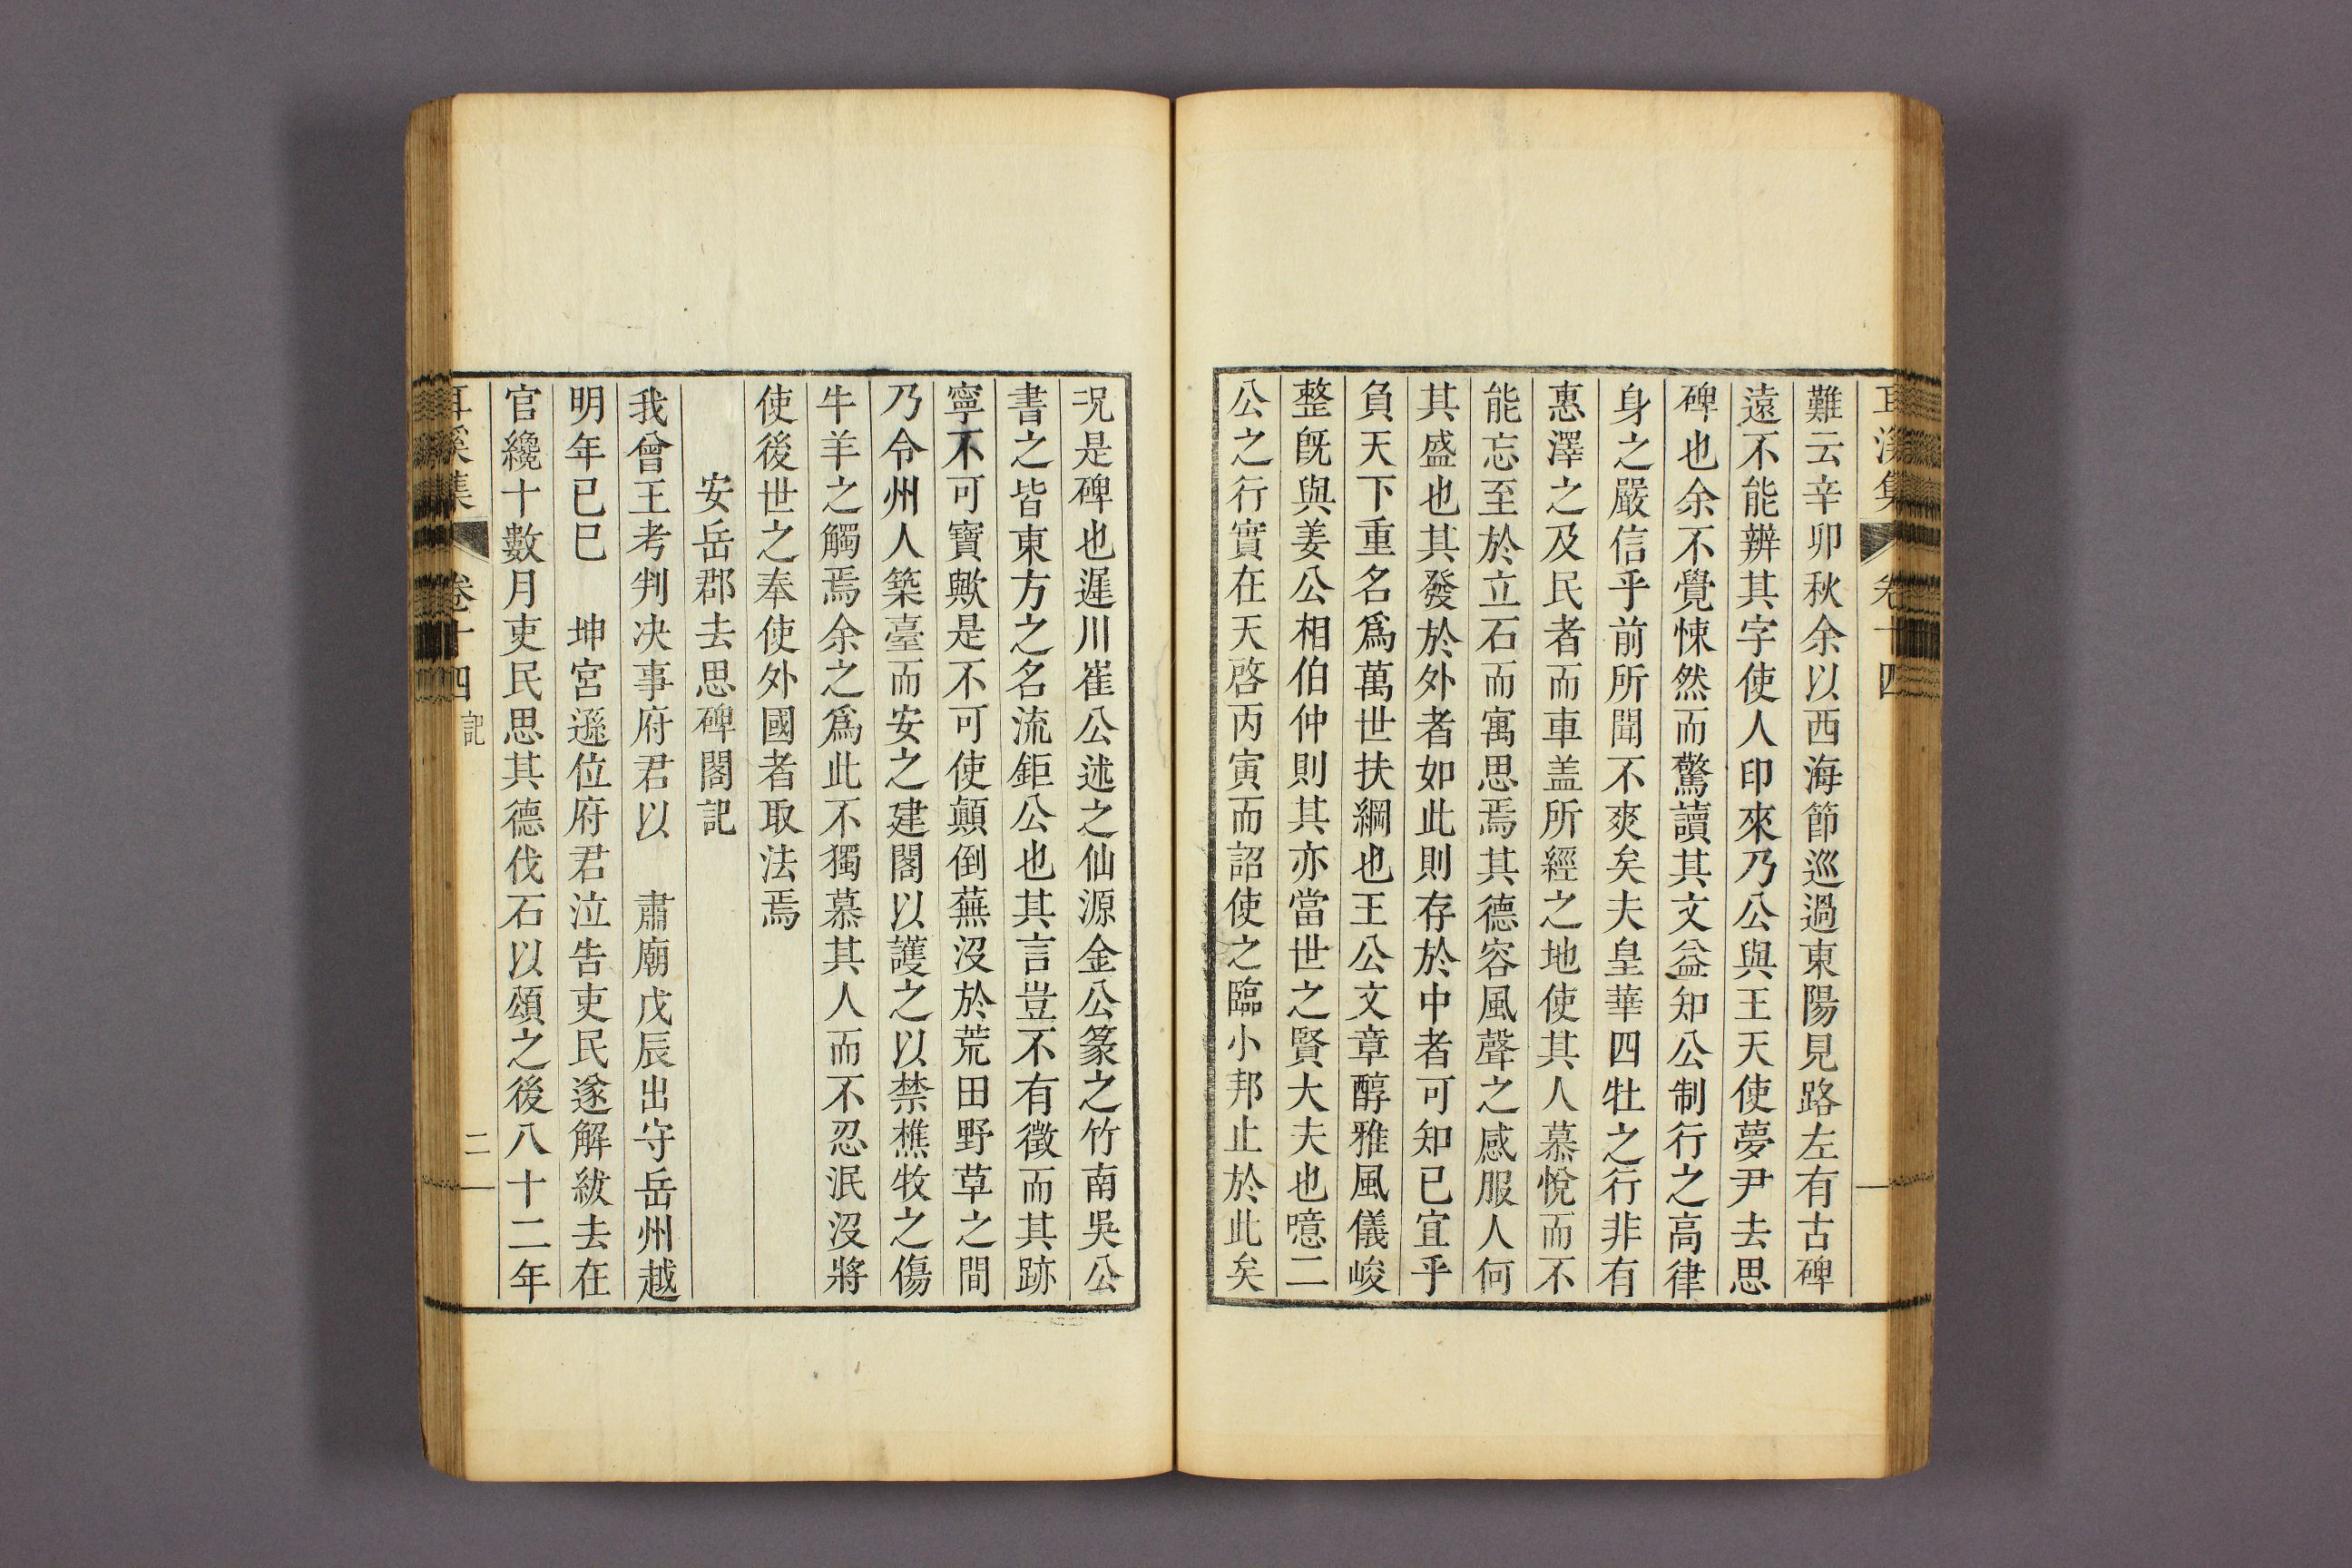 耳溪集 卷十四
難云辛卯秋余以西海節巡過東陽見路左有古碑
遠不能辨其字使人印來乃公與王天使夢尹去思
碑也余不覺悚然而驚讀其文益知公制行之高律
身之嚴信乎前所聞不爽矣夫皇華四牡之行非有
惠澤之及民者而車盖所經之地使其人慕悅而不
能忘至於立石而寓思焉其德容風聲之感服人何
其盛也其發於外者如此則存於中者可知已宜乎
負天下重名爲萬世扶綱也王公文章醇雅風儀峻
整旣與姜公相伯仲則其亦當世之賢大夫也噫二
公之行實在天啓丙寅而詔使之臨小邦止於此矣
况是碑也遲川崔公述之仙源金公篆之竹南吳公
書之皆東方之名流鉅公也其言豈不有徵而其跡
寧不可寶歟是不可使顚倒蕪沒於荒田野草之間
乃令州人築臺而安之建閣以護之以禁樵牧之傷
牛羊之觸焉余之爲此不獨慕其人而不忍泯沒將
使後世之奉使外國者取法焉
安岳郡去思碑閣記
我曾王考判决事府君以 肅廟戊辰出守岳州越
明年已巳 坤宮遜位府君泣告吏民遂解紱去在
官纔十數月吏民思其德伐石以頌之後八十二年
耳溪集 卷十四 記 二